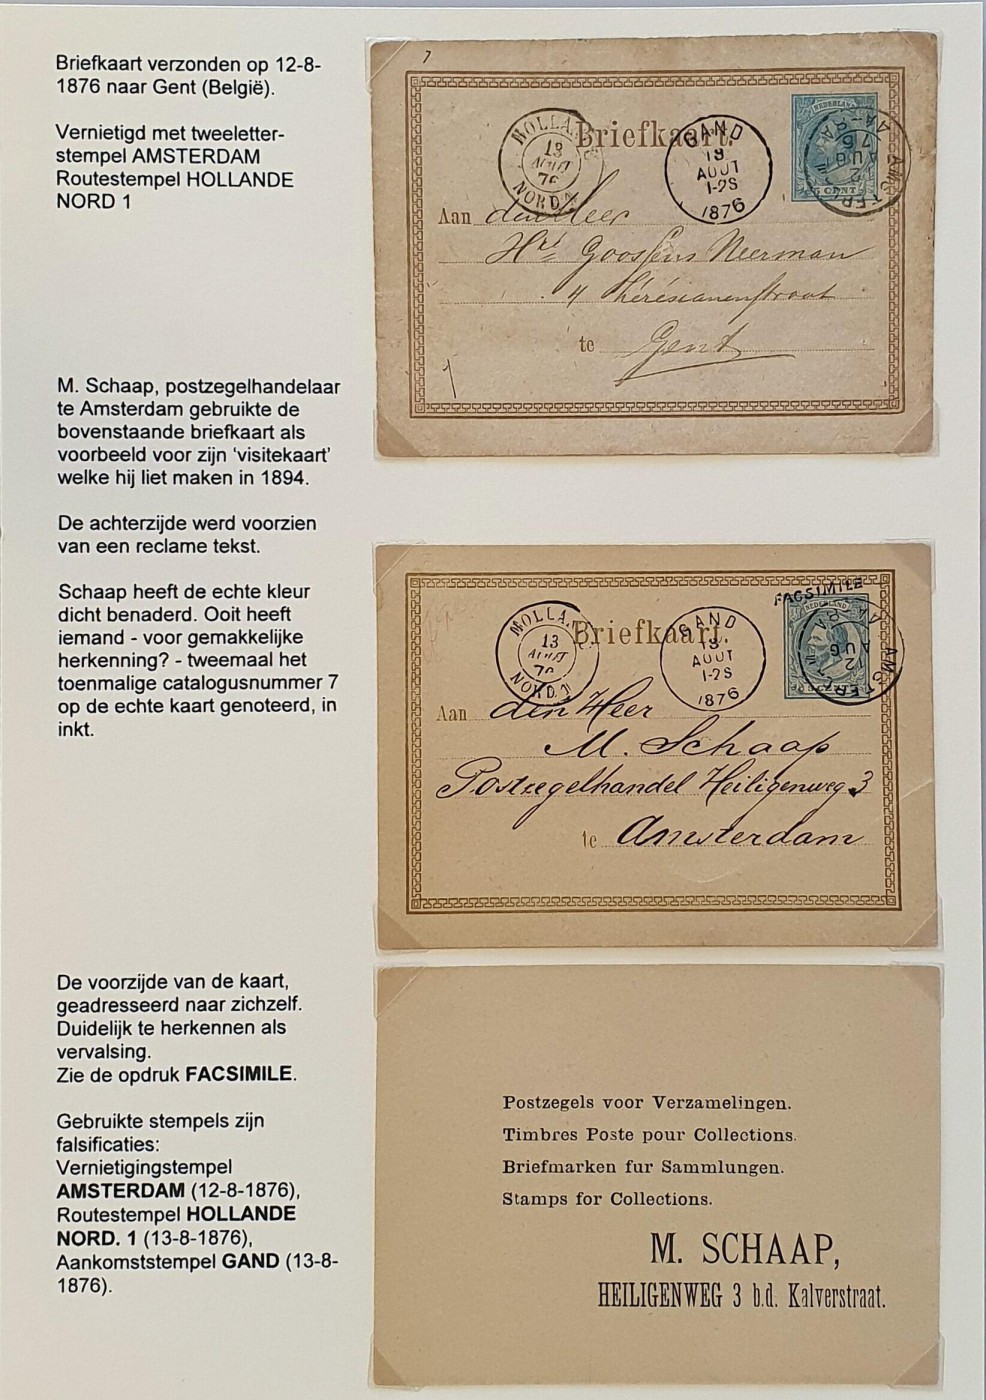 Briefkaart verzonden op 12-8-
1876 naar Gent (België).
Vernietigd met tweeletter-
stempel AMSTERDAM
Routestempel HOLLANDE
NORD 1
7
HOLLANDE
13
AOUT
76
NORD.1
Briefkaart.
GAND
13
AOUT
1-2S
1876
NEDERLAND
5 CENT
AMSTERD
12 AUG 76
Aan den Heer
Hri Goossens Neerman
4 Thérésianenstraat
te Gent
M. Schaap, postzegelhandelaar
te Amsterdam gebruikte de
bovenstaande briefkaart als
voorbeeld voor zijn ‘visitekaart’
welke hij liet maken in 1894.
De achterzijde werd voorzien
van een reclame tekst.
Schaap heeft de echte kleur
dicht benaderd. Ooit heeft
iemand - voor gemakkelijke
herkenning? - tweemaal het
toenmalige catalogusnummer 7
op de echte kaart genoteerd, in
inkt.
FACSIMILE
HOLLANDE
13
AOUT
76
NORD.1
Briefkaart.
GAND
13
AOUT
1-2S
1876
NEDERLAND
AMSTERD
12 AUG
Aan den Heer
M. Schaap
Postzegelhandel Heiligenweg 3
te Amsterdam
De voorzijde van de kaart,
geadresseerd naar zichzelf.
Duidelijk te herkennen als
vervalsing.
Zie de opdruk FACSIMILE.
Gebruikte stempels zijn
falsificaties:
Vernietigingstempel
AMSTERDAM (12-8-1876),
Routestempel HOLLANDE
NORD. 1 (13-8-1876),
Aankomststempel GAND (13-8-
1876).
Postzegels voor Verzamelingen.
Timbres Poste pour Collections.
Briefmarken fur Sammlungen.
Stamps for Collections.
M. SCHAAP,
HEILIGENWEG 3 b.d. Kalverstraat.